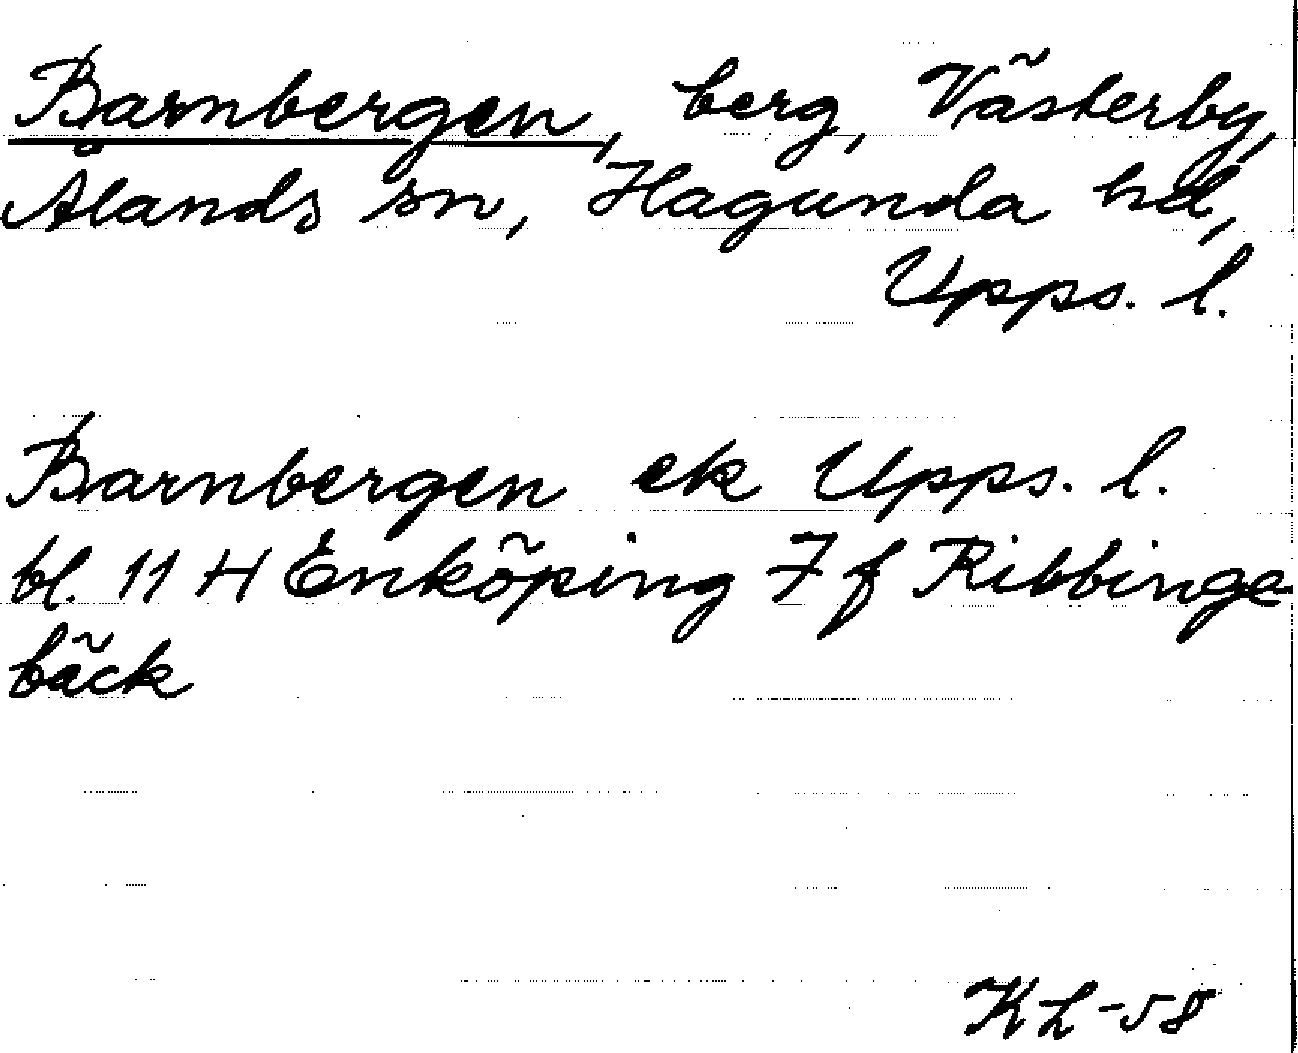 Barnbergen, berg, Västerby,
Ålands sn, Hagunda hd,
Upps. l.
Barnbergen ek Upps. l.
bl. 11 H Enköping 7 f Ribbinge
bäck
KL-58